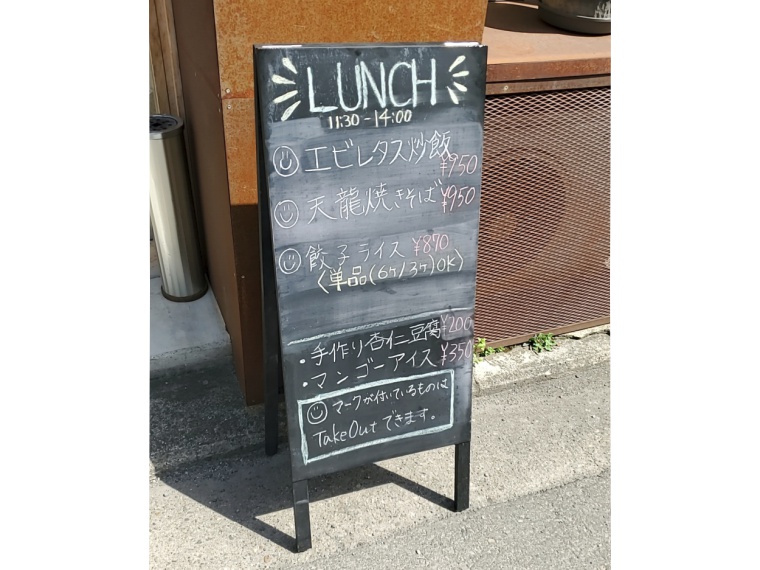 LUNCH
11:30-14:00
エビレタス炒飯 ¥950
天龍焼きそば ¥950
餃子ライス ¥870
〈単品(6ヶ/3ヶ)OK〉
・手作り杏仁豆腐 ¥200
・マンゴーアイス ¥350
マークが付いているものは
TakeOutできます。